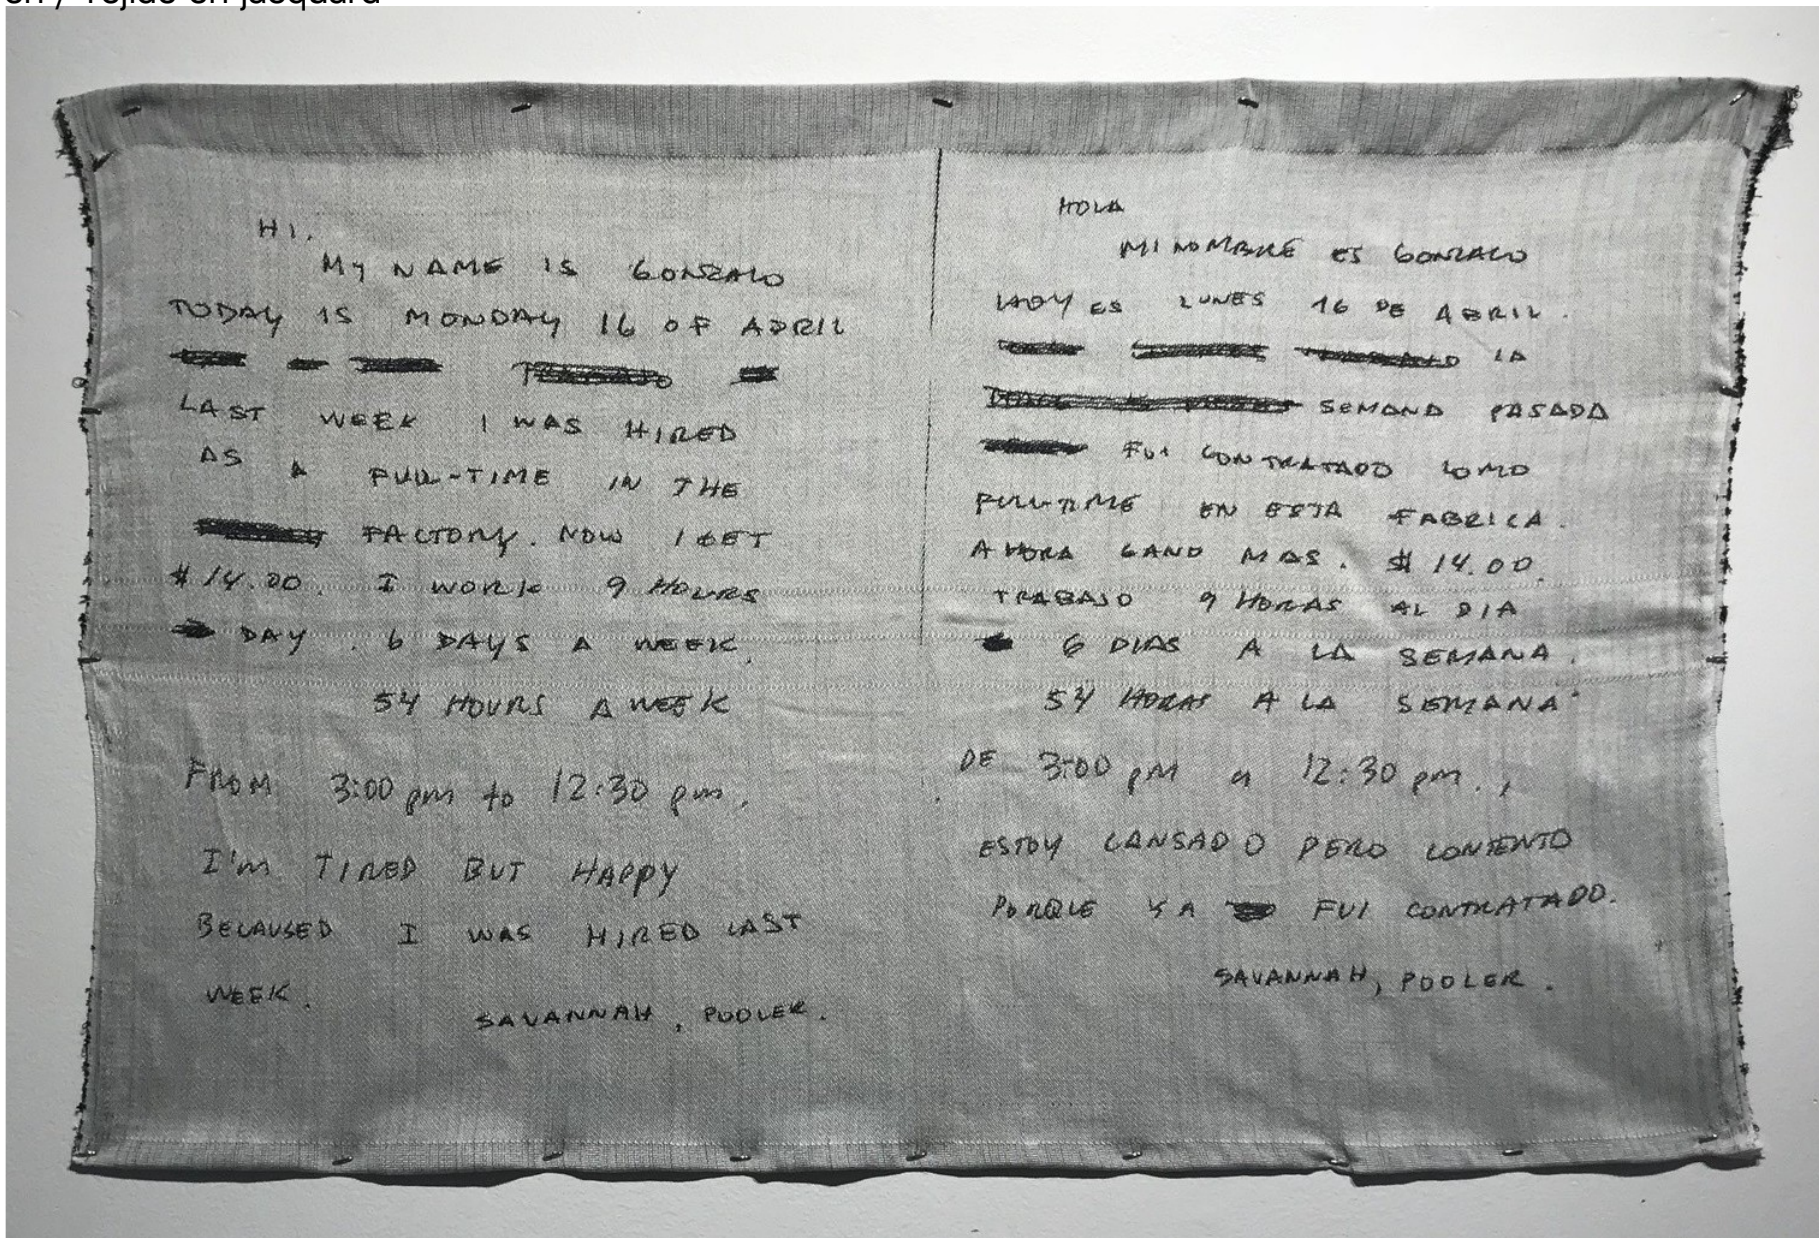 en / Tejido en jacquard
HI.
MY NAME IS GONZALO
TODAY IS MONDAY 16 OF APRIL
LAST WEEK I WAS HIRED
AS A FULL-TIME IN THE
FACTORY. NOW I GET
$14.00. I WORK 9 HOURS
DAY. 6 DAYS A WEEK.
54 HOURS A WEEK
FROM 3:00 pm to 12:30 pm.
I'm TIRED BUT HAPPY
BECAUSED I WAS HIRED LAST
WEEK.
SAVANNAH, POOLER.
HOLA
MI NOMBRE ES GONZALO
HOY ES LUNES 16 DE ABRIL.
LA
SEMANA PASADA
FUI CONTRATADO COMO
FULL-TIME EN ESTA FABRICA.
AHORA GANO MAS. $14.00.
TRABAJO 9 HORAS AL DIA
6 DIAS A LA SEMANA.
54 HORAS A LA SEMANA.
DE 3:00 pm a 12:30 pm.,
ESTOY CANSADO PERO CONTENTO
PORQUE YA FUI CONTRATADO.
SAVANNAH, POOLER.